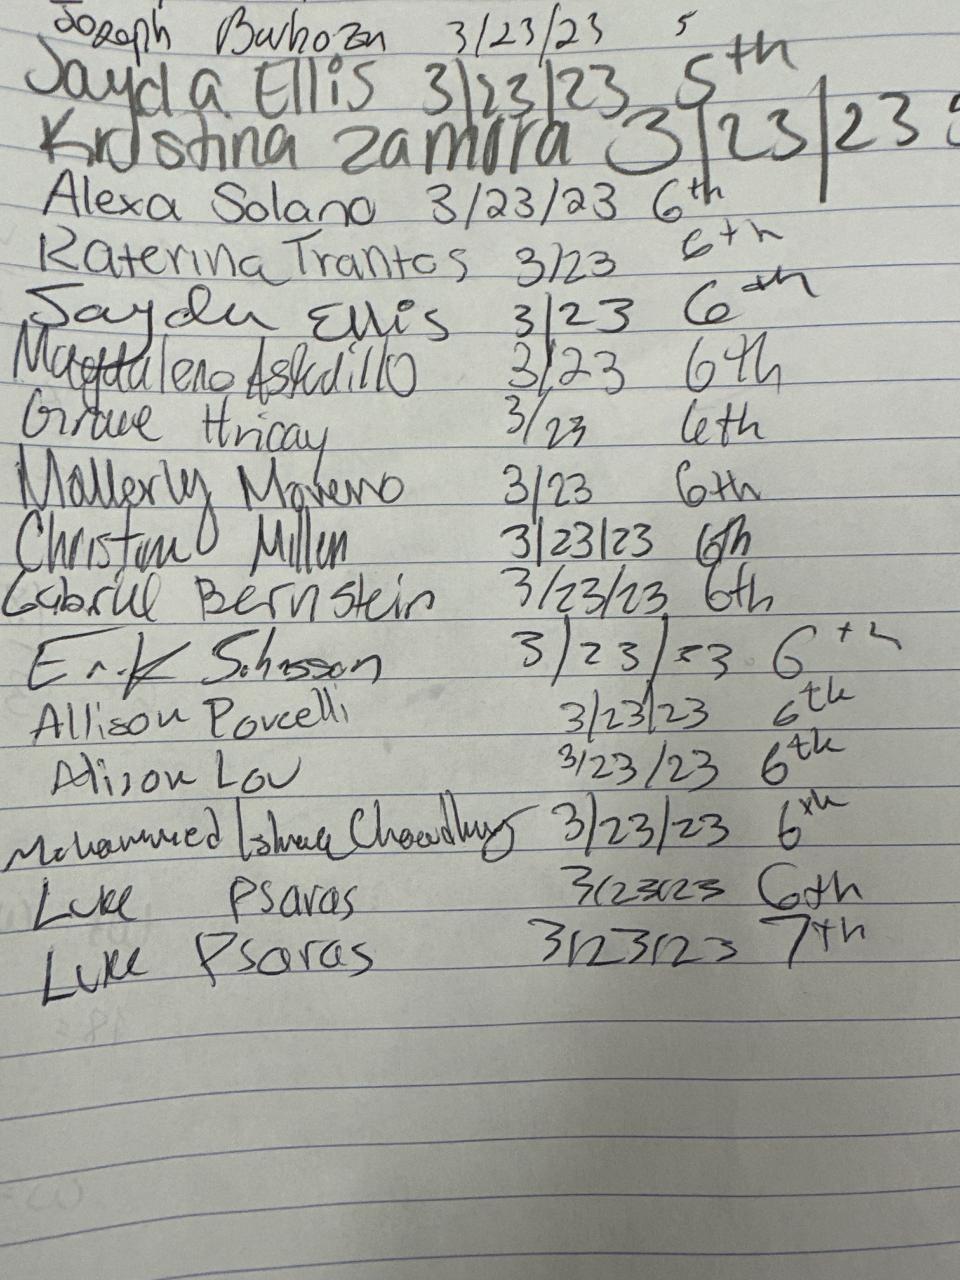 Joseph Barboza 3/23/23 5
Jayda Ellis 3/23/23 5th
Kristina Zamora 3/23/23
Alexa Solano 3/23/23 6th
Katerina Trantos 3/23 6th
Jayda Ellis 3/23 6th
Magdaleno 3/23 6th
Grace Hricay 3/23 6th
Mallerly Moreno 3/23 6th
Christian Millen 3/23/23 6th
Gabriel Bernstein 3/23/23 6th
Erik 3/23/23 6th
Allison Porcelli 3/23/23 6th
Alison Lov 3/23/23 6th
Mohammed Chowdhury 3/23/23 6th
Luke Psaras 3/23/23 6th
Luke Psaras 3/23/23 7th